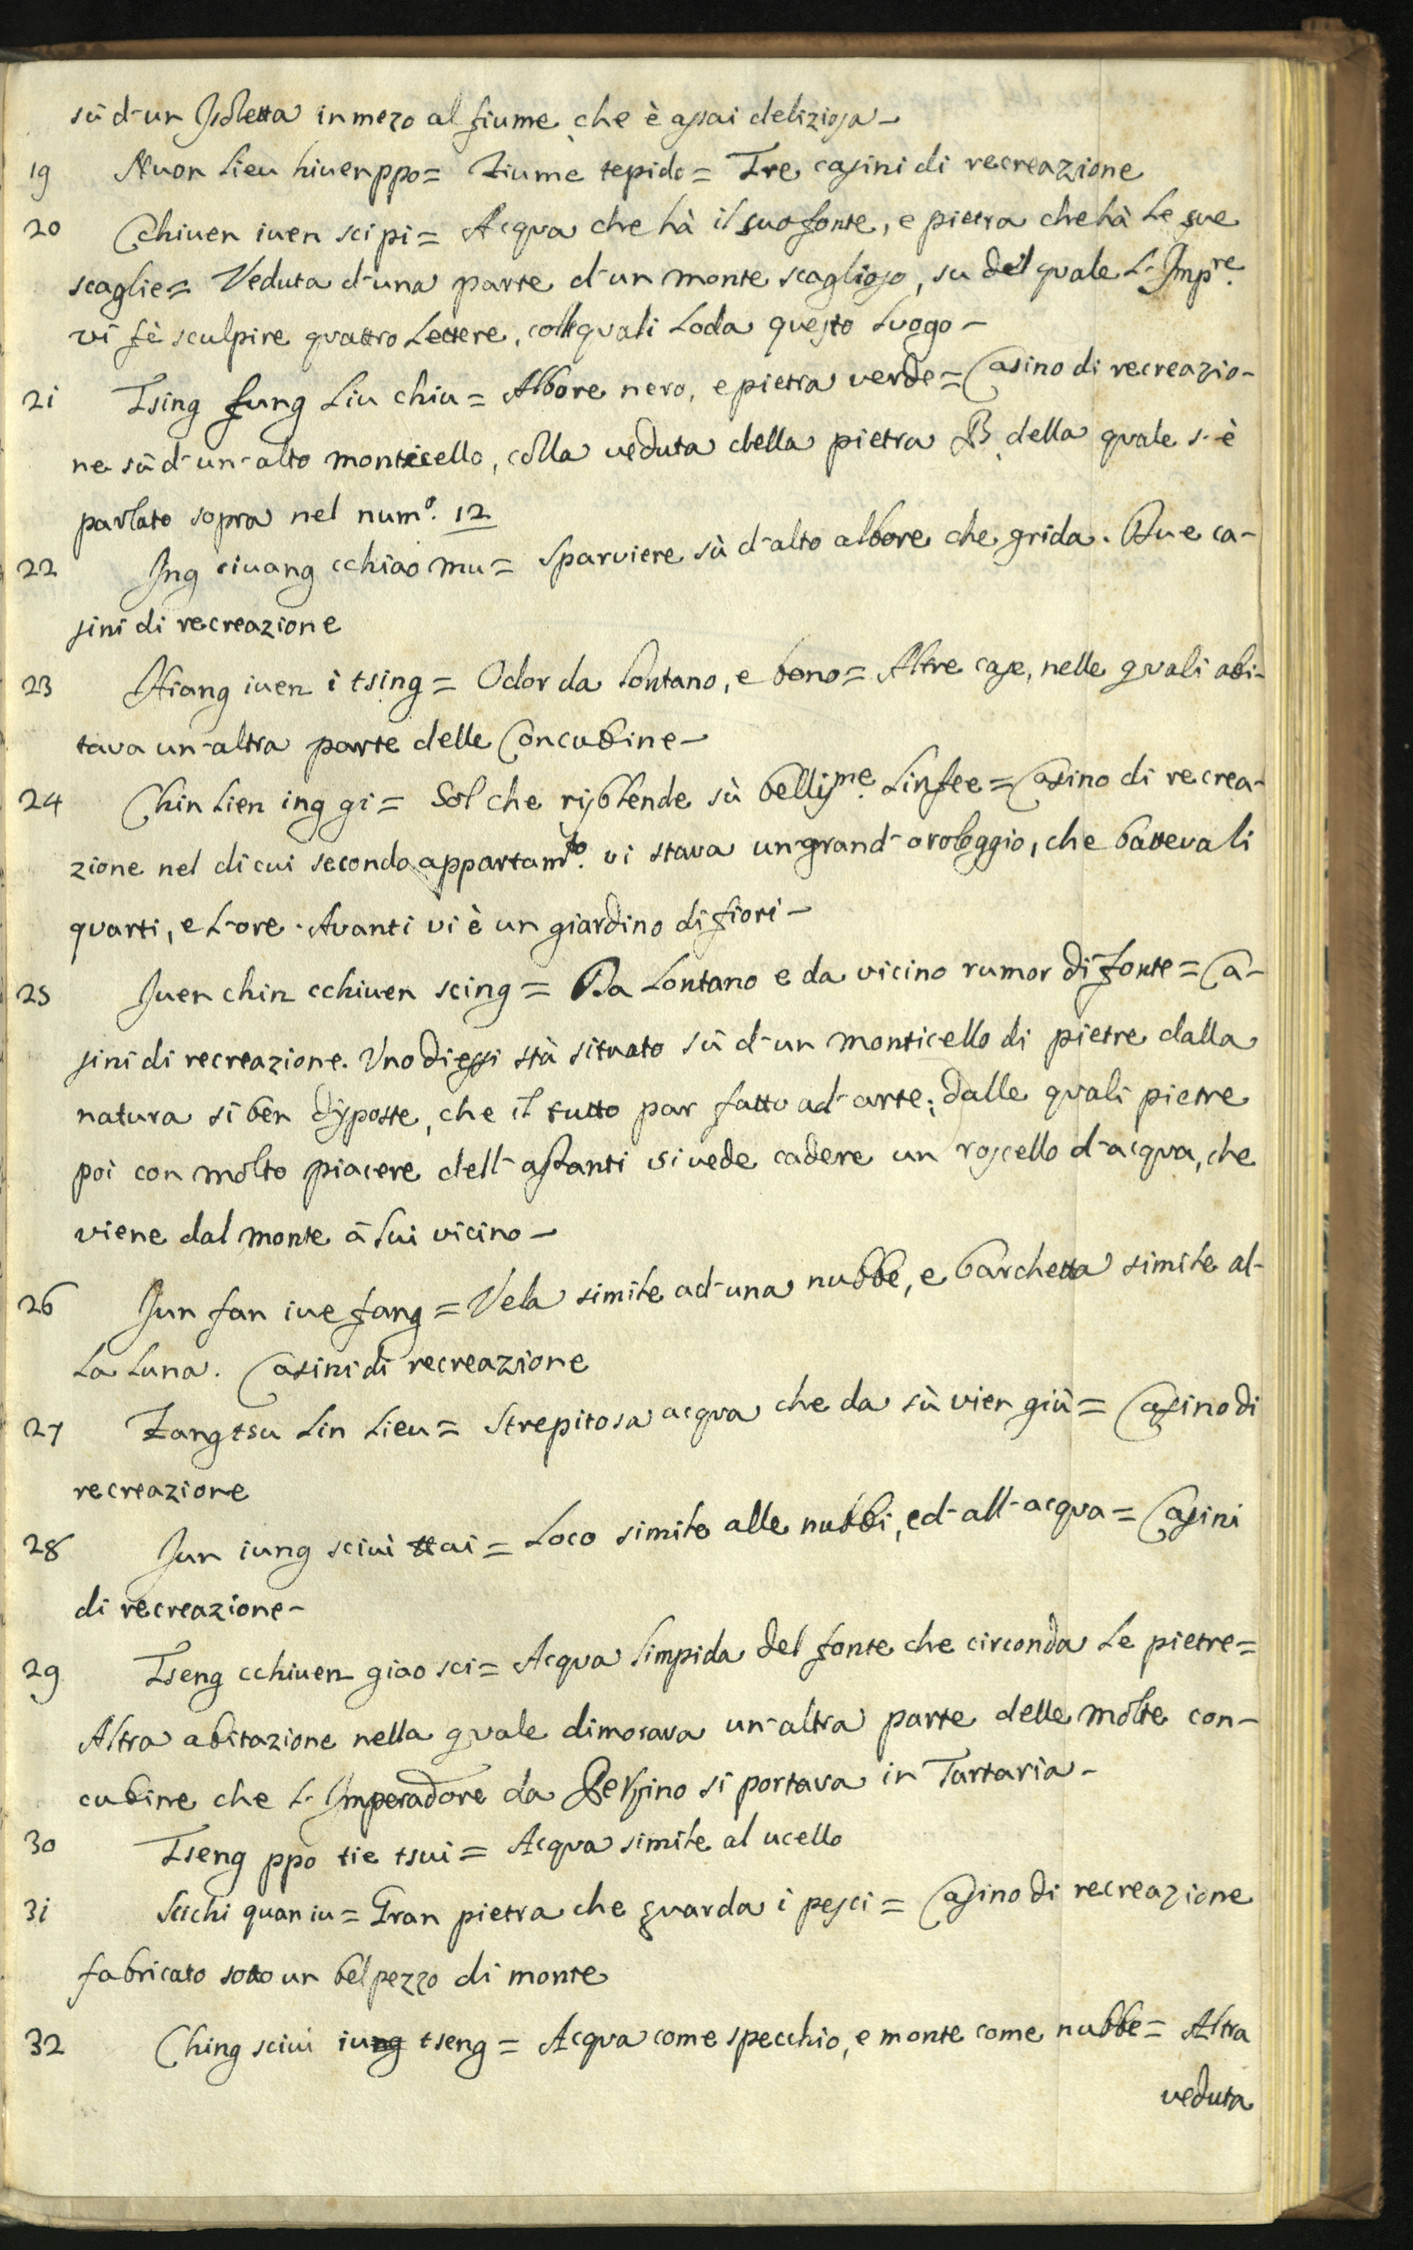 sù d'un Isoletta in mezo al fiume che è assai deliziosa-
19 Nuon lieu hiuenppo= Fiume tepido= Tre casini di recreazione
20 Cchiuen iuen sci pi= Acqua che hà il suo fonte, e pietra che hà le sue
scaglie= Veduta d'una parte d'un monte scaglioso, su del quale l'Impre.
vi fè sculpire quattro Lettere, colle quali loda questo luogo-
21 Tsing fung liu chiu= Albore nero, e pietra verde= Casino di recreazio-
ne sù d'un'alto monticello, colla veduta della pietra B, della quale s'è
parlato sopra nel numo. 12
22 Ing ciuang cchiao mu= Sparviere sù d'alto albore che grida. Due ca-
sini di recreazione
23 Hiang iuen i tsing= Odor da lontano, e bono= Altre case, nelle quali abi-
tava un'altra parte delle Concubine-
24 Chin lien ing gi= Sol che risblende sù bellisme. linfee= Casino di recrea-
zione nel di cui secondo appartamto. vi stava un grand'orologgio, che batteva li
quarti, e l'ore. Avanti vi è un giardino di fiori-
25 Iuen chin cchiuen scing= Da lontano e da vicino rumor di fonte= Ca-
sini di recreazione. Uno di essi stà situato sù d'un monticello di pietre dalla
natura si ben disposte, che il tutto par fatto ad'arte; dalle quali pietre
poi con molto piacere dell'astanti si vede cadere un roscello d'acqua, che
viene dal monte à lui vicino-
26 Iun fan iue fang= Vela simile ad'una nubbe, e barchetta simile al-
la luna. Casini di recreazione
27 Fang tsu lin lieu= Strepitosa acqua che da sù vien giù= Casino di
recreazione
28 Iun iung sciui ttai= Loco simile alle nubbi, ed'all'acqua= Casini
di recreazione-
29 Tseng cchiuen giao sci= Acqua limpida del fonte che circonda le pietre=
Altra abitazione nella quale dimorava un'altra parte delle molte con-
cubine che l'Imperadore da Pekino si portava in Tartaria-
30 Tseng ppo tie tsui= Acqua simile al ucello
31 Scichi quan iu= Gran pietra che guarda i pesci= Casino di recreazione
fabricato sotto un bel pezzo di monte
32 Ching sciui iung tseng= Acqua come specchio, e monte come nubbe= Altra
veduta